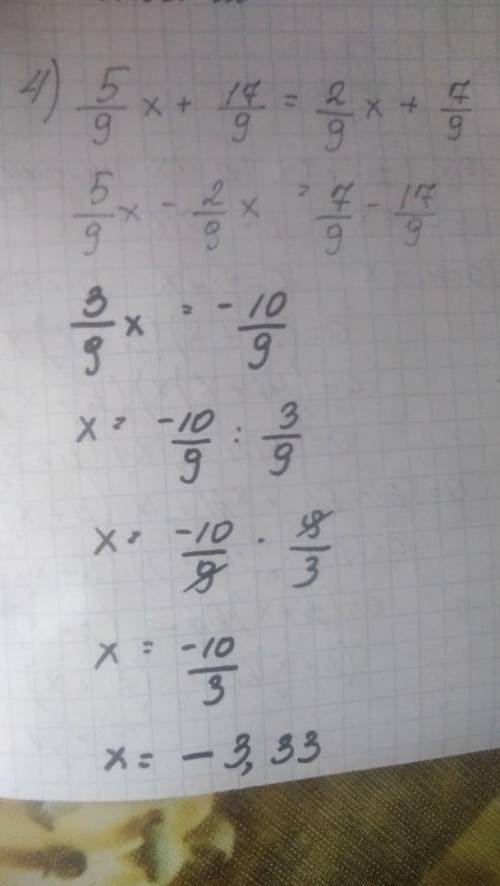 4) 5/9 x + 17/9 = 2/9 x + 7/9
5/9 x - 2/9 x = 7/9 - 17/9
3/9 x = - 10/9
x = -10/9 : 3/9
x = -10/9 · 9/3
x = -10/3
x = - 3,33